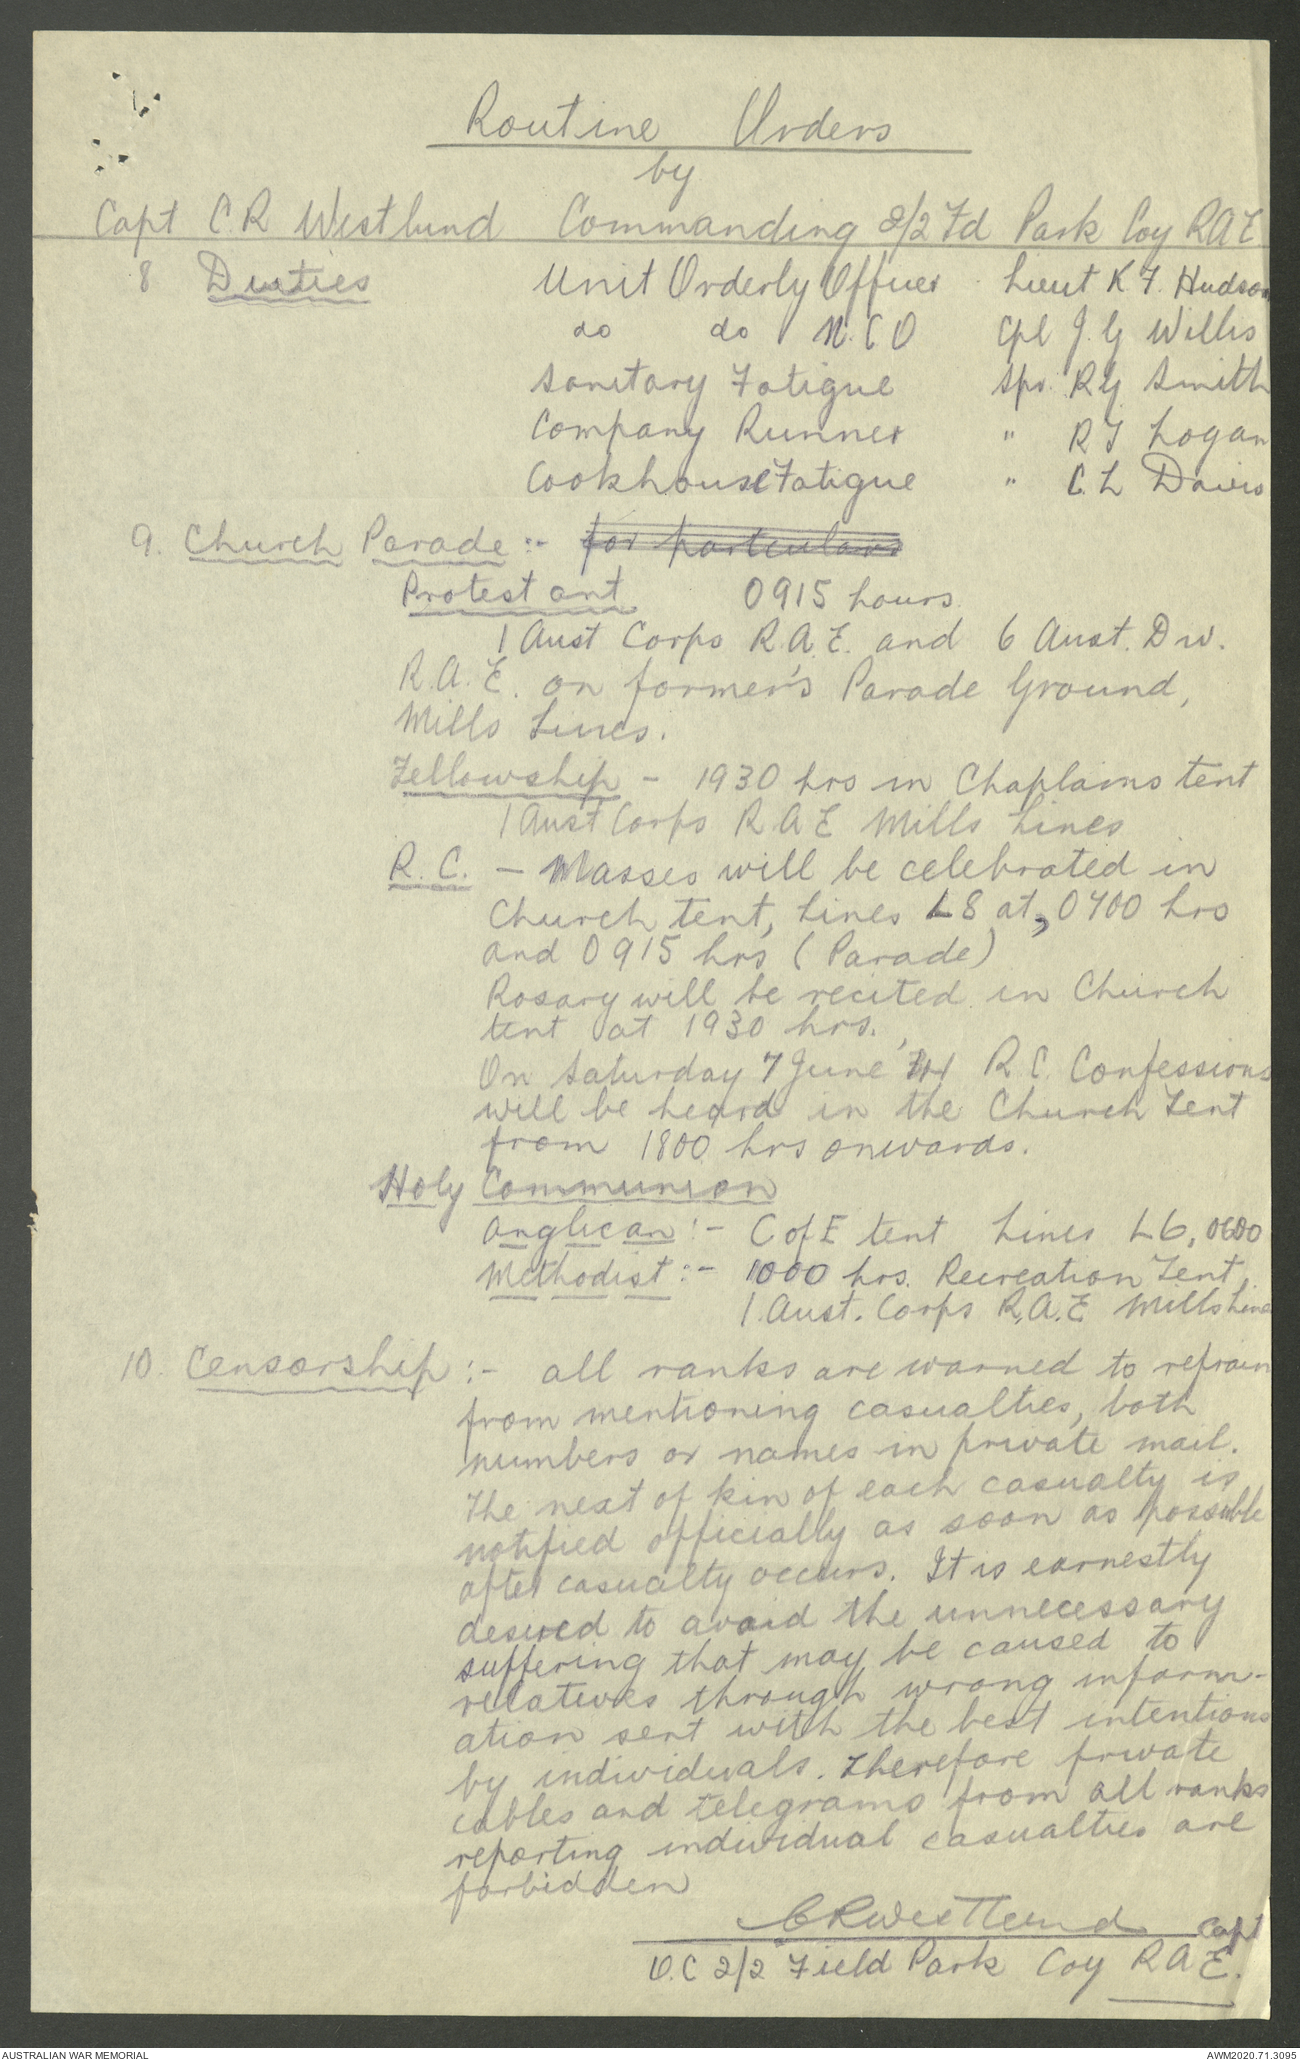 Routine Orders
by
Capt C.R Westlund Commanding 2/2 Fd Park Coy RAE
8 Duties Unit Orderly Officer Lieut K F. Hudson
do do N.C.O Cpl J. G Willis
Sanitary Fatigue Spr. R G Smith
Company Runner " R J Logan
Cookhouse Fatigue " C. L Davis
9. Church Parade :- for particulars
Protestant 0915 hours
1 Aust Corps R.A.E. and 6 Aust. Div.
R.A.E. on former's Parade Ground,
Mills Lines.
Fellowship - 1930 hrs in Chaplains tent
1 Aust Corps R A E Mills Lines
R.C. - Masses will be celebrated in
Church tent, Lines L8 at, 0700 hrs
and 0915 hrs (Parade)
Rosary will be recited in Church
tent at 1930 hrs.
On Saturday 7 June R.C. Confessions
will be heard in the Church Tent
from 1800 hrs onwards.
Holy Communion
Anglican :- C of E tent Lines L6, 0600
Methodist :- 1000 hrs. Recreation Tent,
1. Aust. Corps R.A.E Mills Line
10. Censorship :- all ranks are warned to refrain
from mentioning casualties, both
numbers or names in private mail.
The next of kin of each casualty is
notified officially as soon as possible
after casualty occurs. It is earnestly
desired to avoid the unnecessary
suffering that may be caused to
relatives through wrong inform-
ation sent with the best intentions
by individuals. Therefore private
cables and telegrams from all ranks
reporting individual casualties are
forbidden
C R Westlund Capt
O.C 2/2 Field Park Coy R A E.
AUSTRALIAN WAR MEMORIAL AWM2020.71.3095